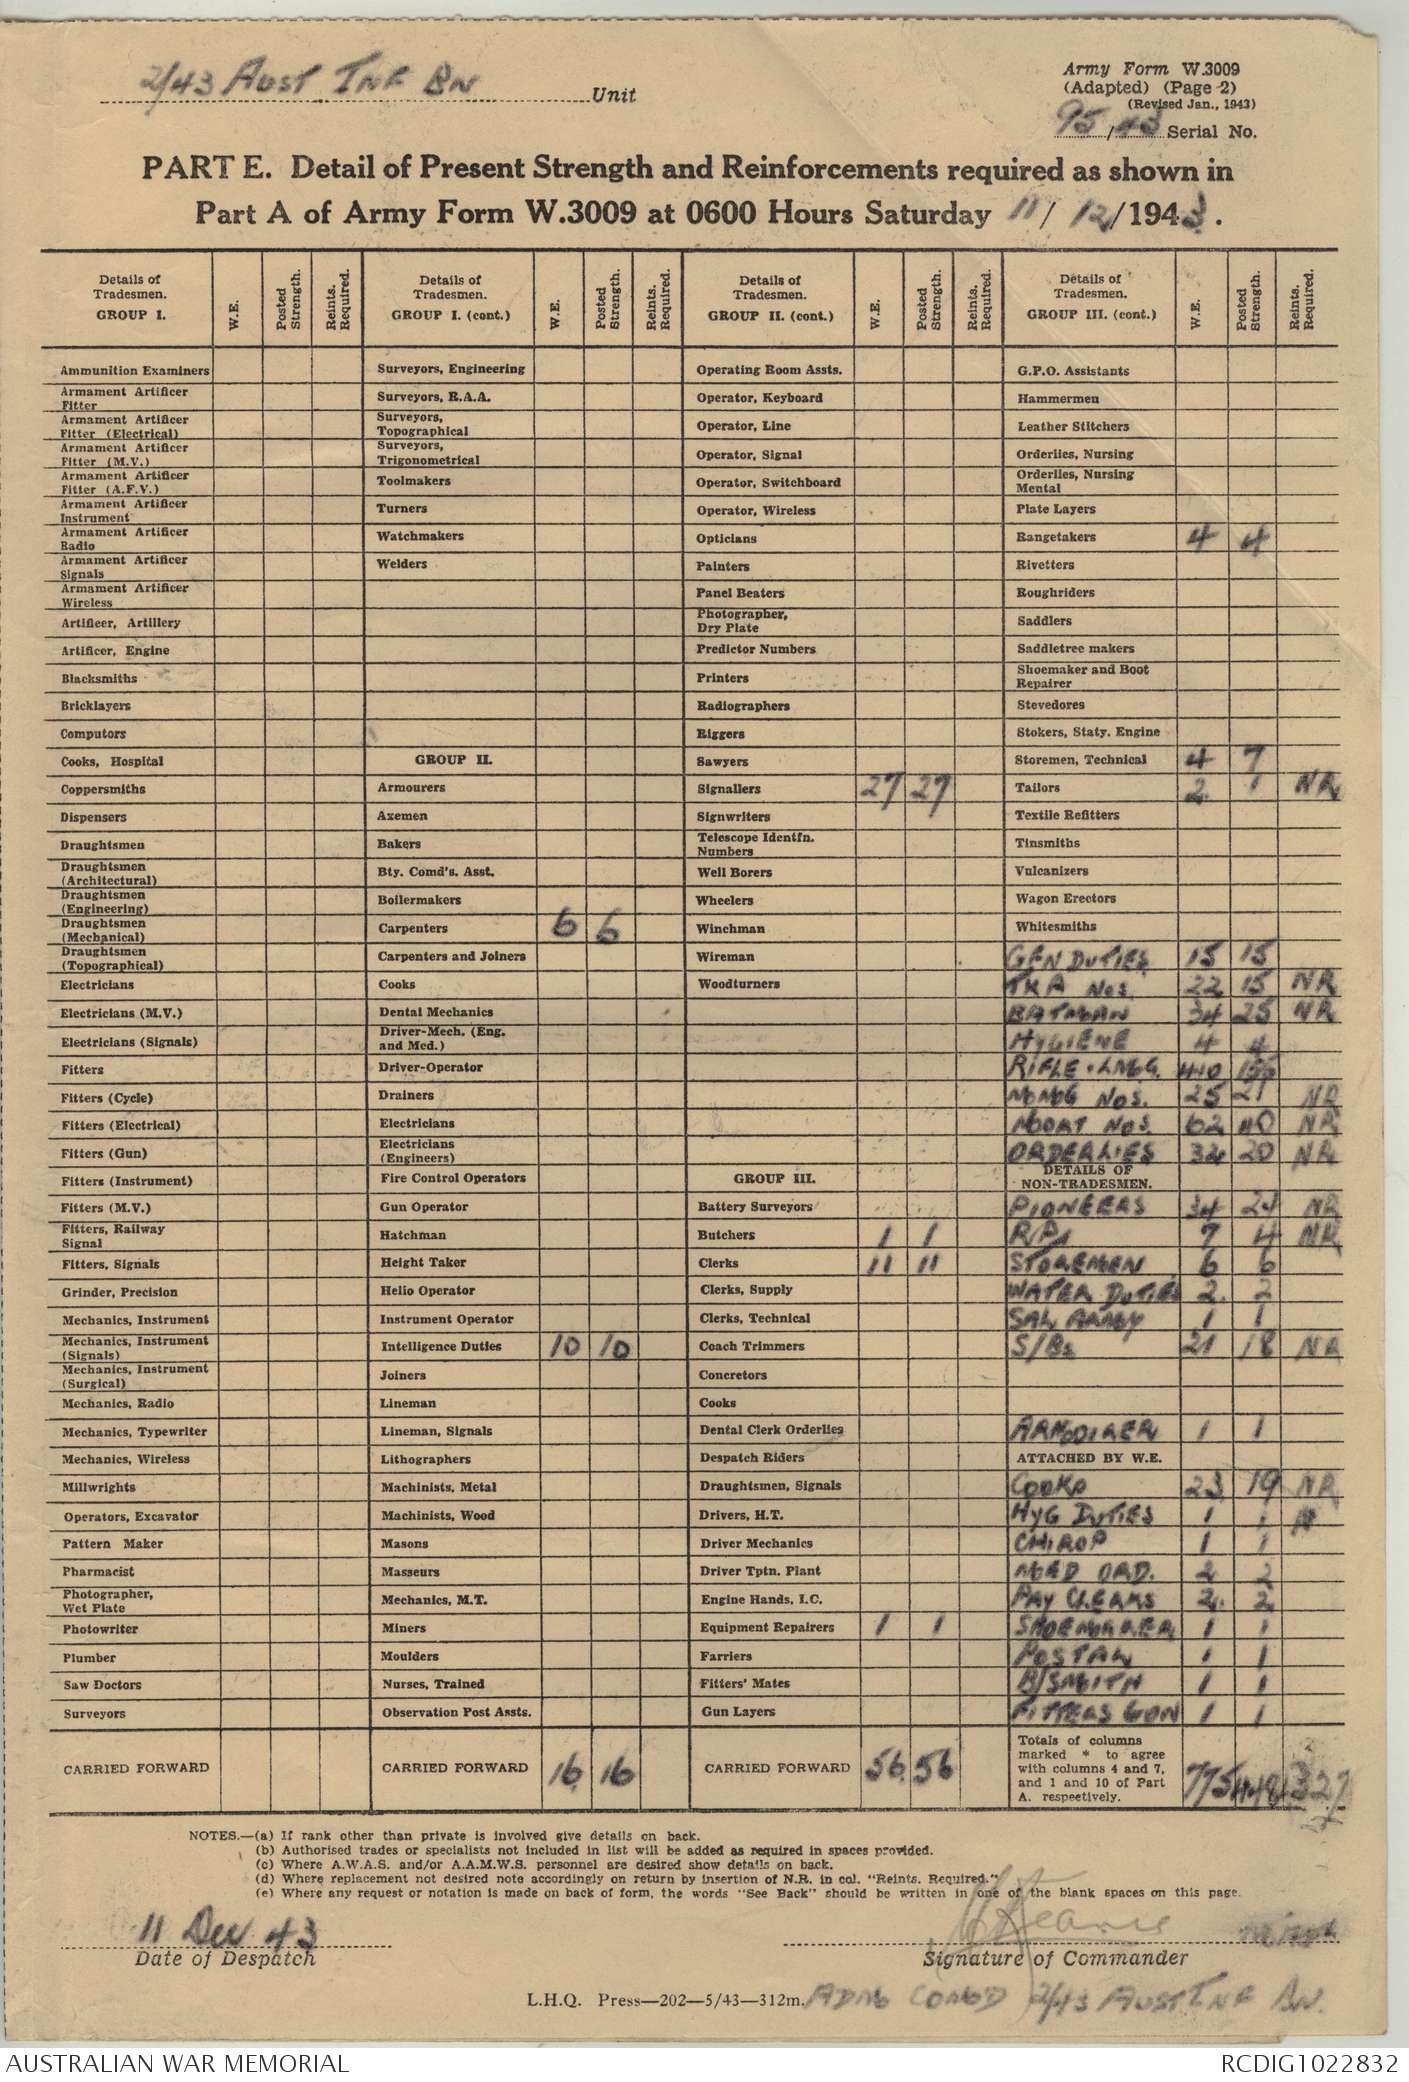 2/43 AUST INF BN Unit
Army Form W.3009
(Adapted) (Page 2)
(Revised Jan., 1943)
95/43 Serial No.
PART E. Detail of Present Strength and Reinforcements required as shown in
Part A of Army Form W.3009 at 0600 Hours Saturday 11/12/1943.
Details of Tradesmen. GROUP I. W.E. Posted Strength. Reints. Required.
Ammunition Examiners
Armament Artificer Fitter
Armament Artificer Fitter (Electrical)
Armament Artificer Fitter (M.V.)
Armament Artificer Fitter (A.F.V.)
Armament Artificer Instrument
Armament Artificer Radio
Armament Artificer Signals
Armament Artificer Wireless
Artificer, Artillery
Artificer, Engine
Blacksmiths
Bricklayers
Computors
Cooks, Hospital
Coppersmiths
Dispensers
Draughtsmen
Draughtsmen (Architectural)
Draughtsmen (Engineering)
Draughtsmen (Mechanical)
Draughtsmen (Topographical)
Electricians
Electricians (M.V.)
Electricians (Signals)
Fitters
Fitters (Cycle)
Fitters (Electrical)
Fitters (Gun)
Fitters (Instrument)
Fitters (M.V.)
Fitters, Railway Signal
Fitters, Signals
Grinder, Precision
Mechanics, Instrument
Mechanics, Instrument (Signals)
Mechanics, Instrument (Surgical)
Mechanics, Radio
Mechanics, Typewriter
Mechanics, Wireless
Millwrights
Operators, Excavator
Pattern Maker
Pharmacist
Photographer, Wet Plate
Photowriter
Plumber
Saw Doctors
Surveyors
CARRIED FORWARD
Details of Tradesmen. GROUP I. (cont.) W.E. Posted Strength. Reints. Required.
Surveyors, Engineering
Surveyors, R.A.A.
Surveyors, Topographical
Surveyors, Trigonometrical
Toolmakers
Turners
Watchmakers
Welders
GROUP II.
Armourers
Axemen
Bakers
Bty. Comd's. Asst.
Boilermakers
Carpenters 6 6
Carpenters and Joiners
Cooks
Dental Mechanics
Driver-Mech. (Eng. and Med.)
Driver-Operator
Drainers
Electricians
Electricians (Engineers)
Fire Control Operators
Gun Operator
Hatchman
Height Taker
Helio Operator
Instrument Operator
Intelligence Duties 10 10
Joiners
Lineman
Lineman, Signals
Lithographers
Machinists, Metal
Machinists, Wood
Masons
Masseurs
Mechanics, M.T.
Miners
Moulders
Nurses, Trained
Observation Post Assts.
CARRIED FORWARD 16 16
Details of Tradesmen. GROUP II. (cont.) W.E. Posted Strength. Reints. Required.
Operating Room Assts.
Operator, Keyboard
Operator, Line
Operator, Signal
Operator, Switchboard
Operator, Wireless
Opticians
Painters
Panel Beaters
Photographer, Dry Plate
Predictor Numbers
Printers
Radiographers
Riggers
Sawyers
Signallers 27 27
Signwriters
Telescope Identfn. Numbers
Well Borers
Wheelers
Winchman
Wireman
Woodturners
GROUP III.
Battery Surveyors
Butchers 1 1
Clerks 11 11
Clerks, Supply
Clerks, Technical
Coach Trimmers
Concretors
Cooks
Dental Clerk Orderlies
Despatch Riders
Draughtsmen, Signals
Drivers, H.T.
Driver Mechanics
Driver Tptn. Plant
Engine Hands, I.C.
Equipment Repairers 1 1
Farriers
Fitters' Mates
Gun Layers
CARRIED FORWARD 56 56
Details of Tradesmen. GROUP III. (cont.) W.E. Posted Strength. Reints. Required.
G.P.O. Assistants
Hammermen
Leather Stitchers
Orderlies, Nursing
Orderlies, Nursing Mental
Plate Layers
Rangetakers 4 4
Rivetters
Roughriders
Saddlers
Saddletree makers
Shoemaker and Boot Repairer
Stevedores
Stokers, Staty. Engine
Storemen, Technical 4 7
Tailors 2 1 NR
Textile Refitters
Tinsmiths
Vulcanizers
Wagon Erectors
Whitesmiths
GEN DUTIES 15 15
TKA Nos. 22 15 NR
BATMAN 34 25 NR
HYGIENE 4 4
RIFLE + LMG. 410 155
MMG Nos. 25 21 NR
MORT Nos. 62 40 NR
ORDERLIES 32 20 NR
DETAILS OF NON-TRADESMEN.
PIONEERS 34 24 NR
R.Ps 7 4 NR
STOREMEN 6 6
WATER DUTIES 2 2
SAL ARMY 1 1
S/Bs 21 18 NR
ARMOURER 1 1
ATTACHED BY W.E.
COOKS 23 19 NR
HYG DUTIES 1 1
CHIROP 1 1
MED ORD. 2 2
PAY CLERKS 2 2
SHOEMAKER 1 1
POSTAL 1 1
B/SMITH 1 1
FITTERS GUN 1 1
Totals of columns marked * to agree with columns 4 and 7, and 1 and 10 of Part A. respectively. 775 448 327
NOTES.—(a) If rank other than private is involved give details on back.
(b) Authorised trades or specialists not included in list will be added as required in spaces provided.
(c) Where A.W.A.S. and/or A.A.M.W.S. personnel are desired show details on back.
(d) Where replacement not desired note accordingly on return by insertion of N.R. in col. "Reints. Required."
(e) Where any request or notation is made on back of form, the words "See Back" should be written in one of the blank spaces on this page.
11 Dec 43
Date of Despatch
Signature of Commander
L.H.Q. Press—202—5/43—312m.
ADM COMD 2/43 AUST INF BN.
AUSTRALIAN WAR MEMORIAL
RCDIG1022832